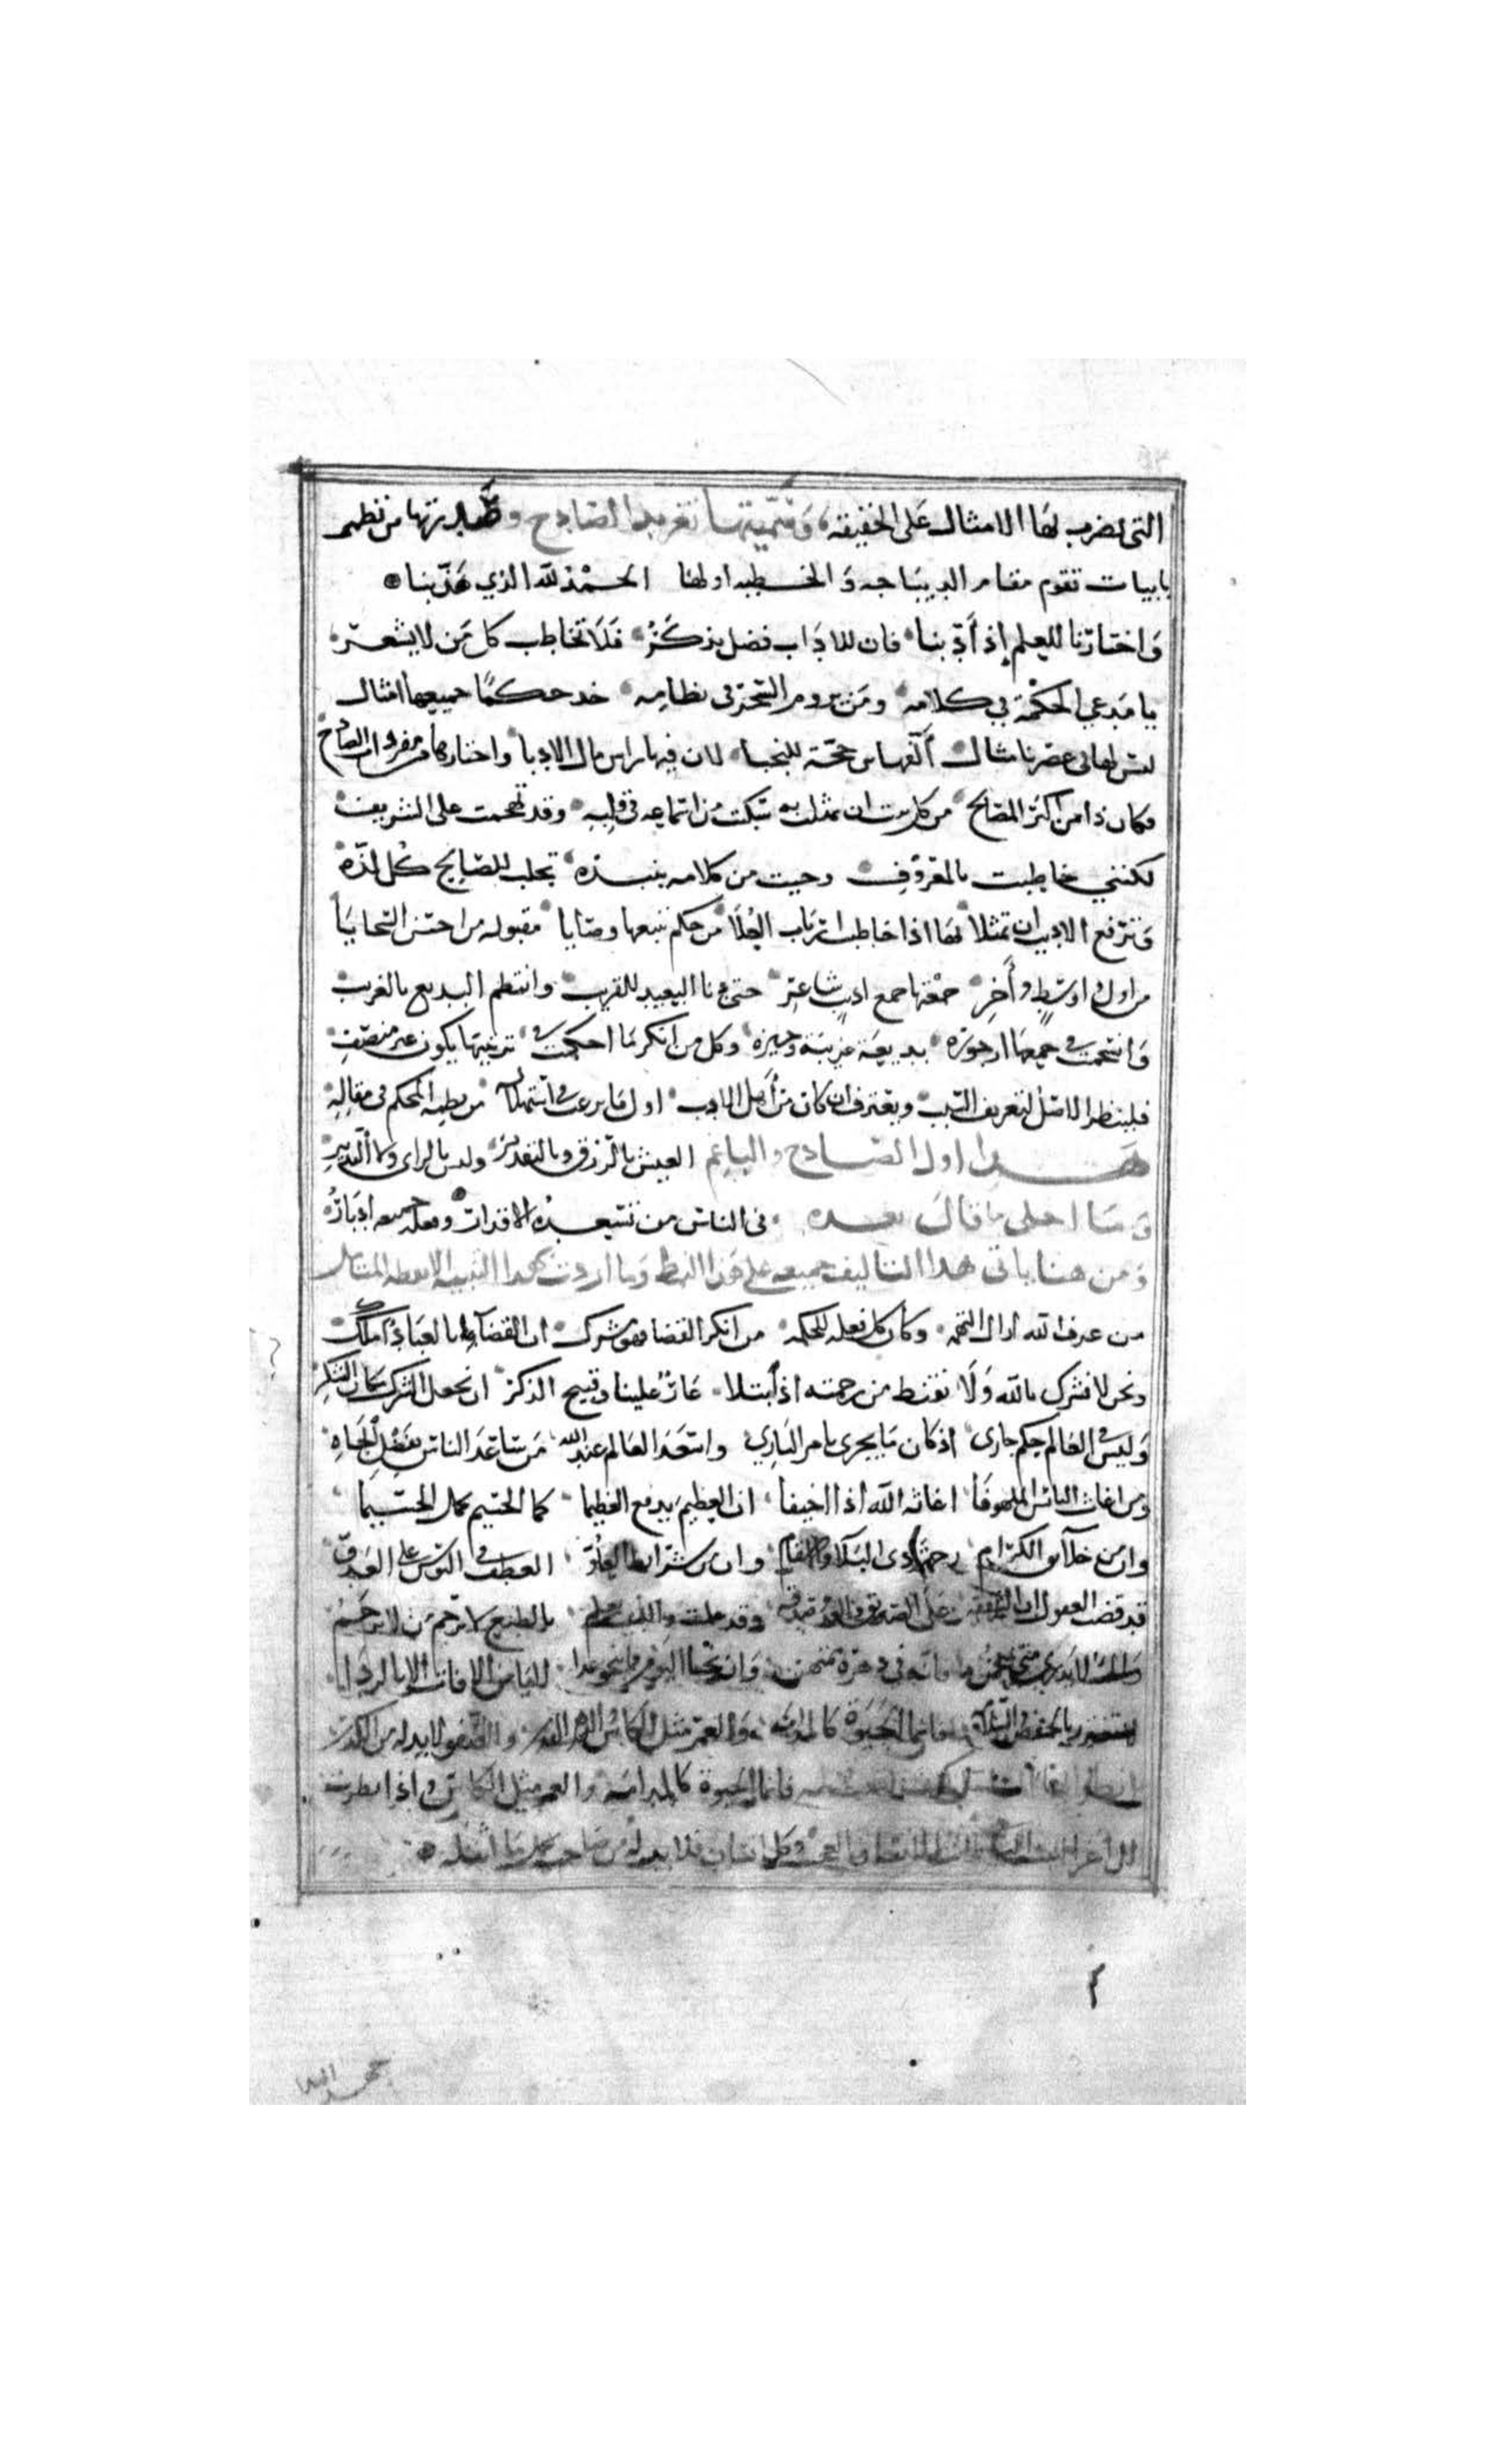 التى يضرب بها الامثال على الحقيقه وسميتها تغريد الصادح وصدرتها من نظمى
بابيات تقوم مقام الديباجه والخطبه اولها الحمد لله الذي هذبنا
واختارنا للعلم إذ أدبنا فان للاداب فضل يذكر فلا تخاطب كل من لا يشعر
يا مدعي الحكمة في كلامه ومن يروم السحر فى نظامه خذ حكمًا جميعها امثال
ليس لها فى عصرنا مثال ألفها من حجة للنجبا لان فيها راس مال الادبا واختارها من مفردات الصادح
فكان ذا من اكبر المصالح من كل بيت ان تمثلت به سكنت من اتماعه فى قلبه وقد تهجمت على الشريف
لكننى خاطبت بالمعروف وجيت من كلامه بنبذه تجلب للصايح كل لذه
وترفع الاديب ان تمثلا بها اذا خاطب ارباب العلا من حكم نتبعها وصايا مقبوله من احسن السجايا
من اول واوسط وأخر جمعتها جمع اديب شاعر حتى دنا البعيد للقريب وانتظم البديع بالغريب
وانتحمت جميعها ارجوزه بديعة غريبة وجيزه وكل من انكر ما احكمت فى ترتيبها يكون غير منصف
فلينظر الاصل لتعريف السبب ويعترف ان كان من أهل الادب اول ما برعت فى استهلال من نظمه المحكم فى مقاله
هذا اول الصادح والباغم العيش بالرزق وبالتقدير وليس بالراى ولا التدبير
وما احلى ما قال بعده فى الناس من تسعده الاقدار وفعله جميعه ادبار
ومن هنا ياتى هذا التاليف جميعه على هذا النمط وما اردت بهذا التنبيه الا يقظه المتامل
من عرف الله ازال التهمه وقال كل فعله للحكمه من انكر القضا فهو مشرك ان القضا بالعباد املك
ونحن لا نشرك بالله ولا نقنط من رحمته اذ ابتلا عار علينا وقبيح الذكر ان نجعل الشرك مكان الشكر
وليس فى العالم حكم جارى اذ كان ما يجرى بامر الباري واسعد العالم عند الله من ساعد الناس بفضل الجاه
ومن اغاث البائس الملهوفا اغاثه الله اذا اخيفا ان العظيم يدفع العظيما كما الجسيم يحمل الجسيما
وان من خلائق الكرام رحمة ذى البلا والاسقام وان من شرائط العلو العطف فى البوس على العدو
قد قضت العقول ان الشفقه على الصديق والعدو صدقه وقد علمت واللبيب يعلم بالطبع لا ترحم من لا يرحم
فانما الحيوة كالمدامه والعمر مثل الكاس والصفو لا بد له من الكدر
فانما الحيوة كالمدامه والعمر مثل الكاس واذا نظرت
وكل انسان فلا بد له من صاحب يحمل ما اثقله